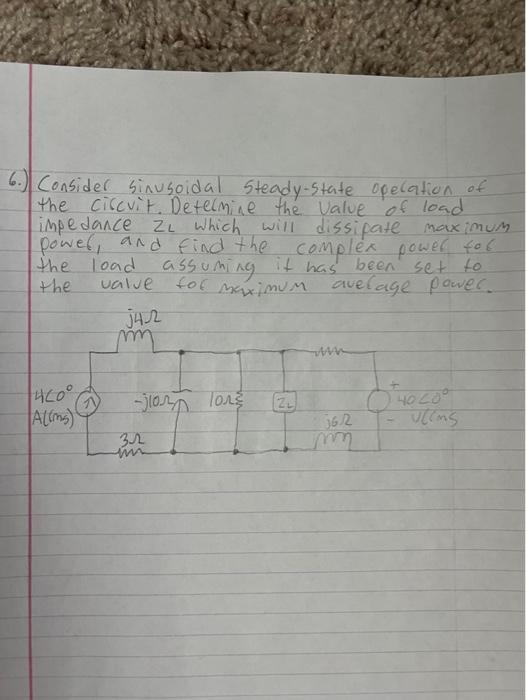 6.) Consider sinusoidal steady-state operation of
the circuit. Determine the value of load
impedance ZL which will dissipate maximum
power, and find the complex power for
the load assuming it has been set to
the value for maximum average power.
j4Ω
4<0°
A(rms)
-j10Ω
10Ω
ZL
+
40<0°
- V(rms
j6Ω
3Ω